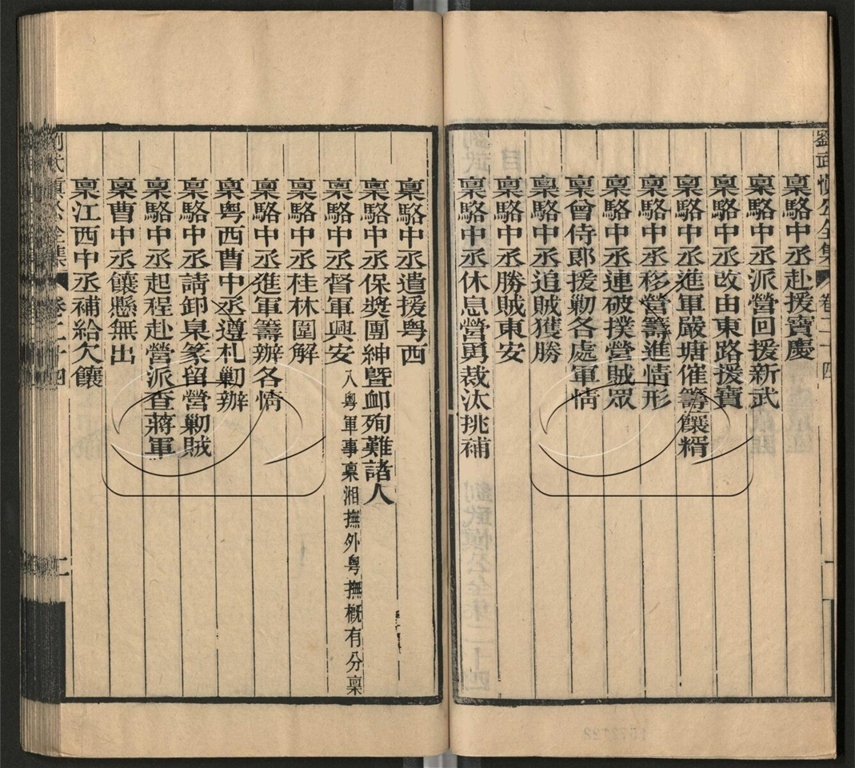 劉武慎公全集 卷二十四
稟駱中丞赴援寶慶
稟駱中丞派營回援新武
稟駱中丞改由東路援寶
稟駱中丞進軍嚴塘催籌饟糈
稟駱中丞移營籌進情形
稟駱中丞連破撲營賊眾
稟曾侍郎援勦各處軍情
稟駱中丞追賊獲勝
稟駱中丞勝賊東安
稟駱中丞休息營勇裁汰挑補
稟駱中丞遣援粵西
稟駱中丞保獎團紳暨卹殉難諸人
稟駱中丞督軍興安 入粵軍事稟湘撫外粵撫概有分稟
稟駱中丞桂林圍解
稟駱中丞進軍籌辦各情
稟粵西曹中丞遵札勦辦
稟駱中丞請卸臬篆留營勦賊
稟駱中丞起程赴營派查蔣軍
稟曹中丞饟懸無出
稟江西中丞補給欠饟
劉武慎公全集 卷二十四 二